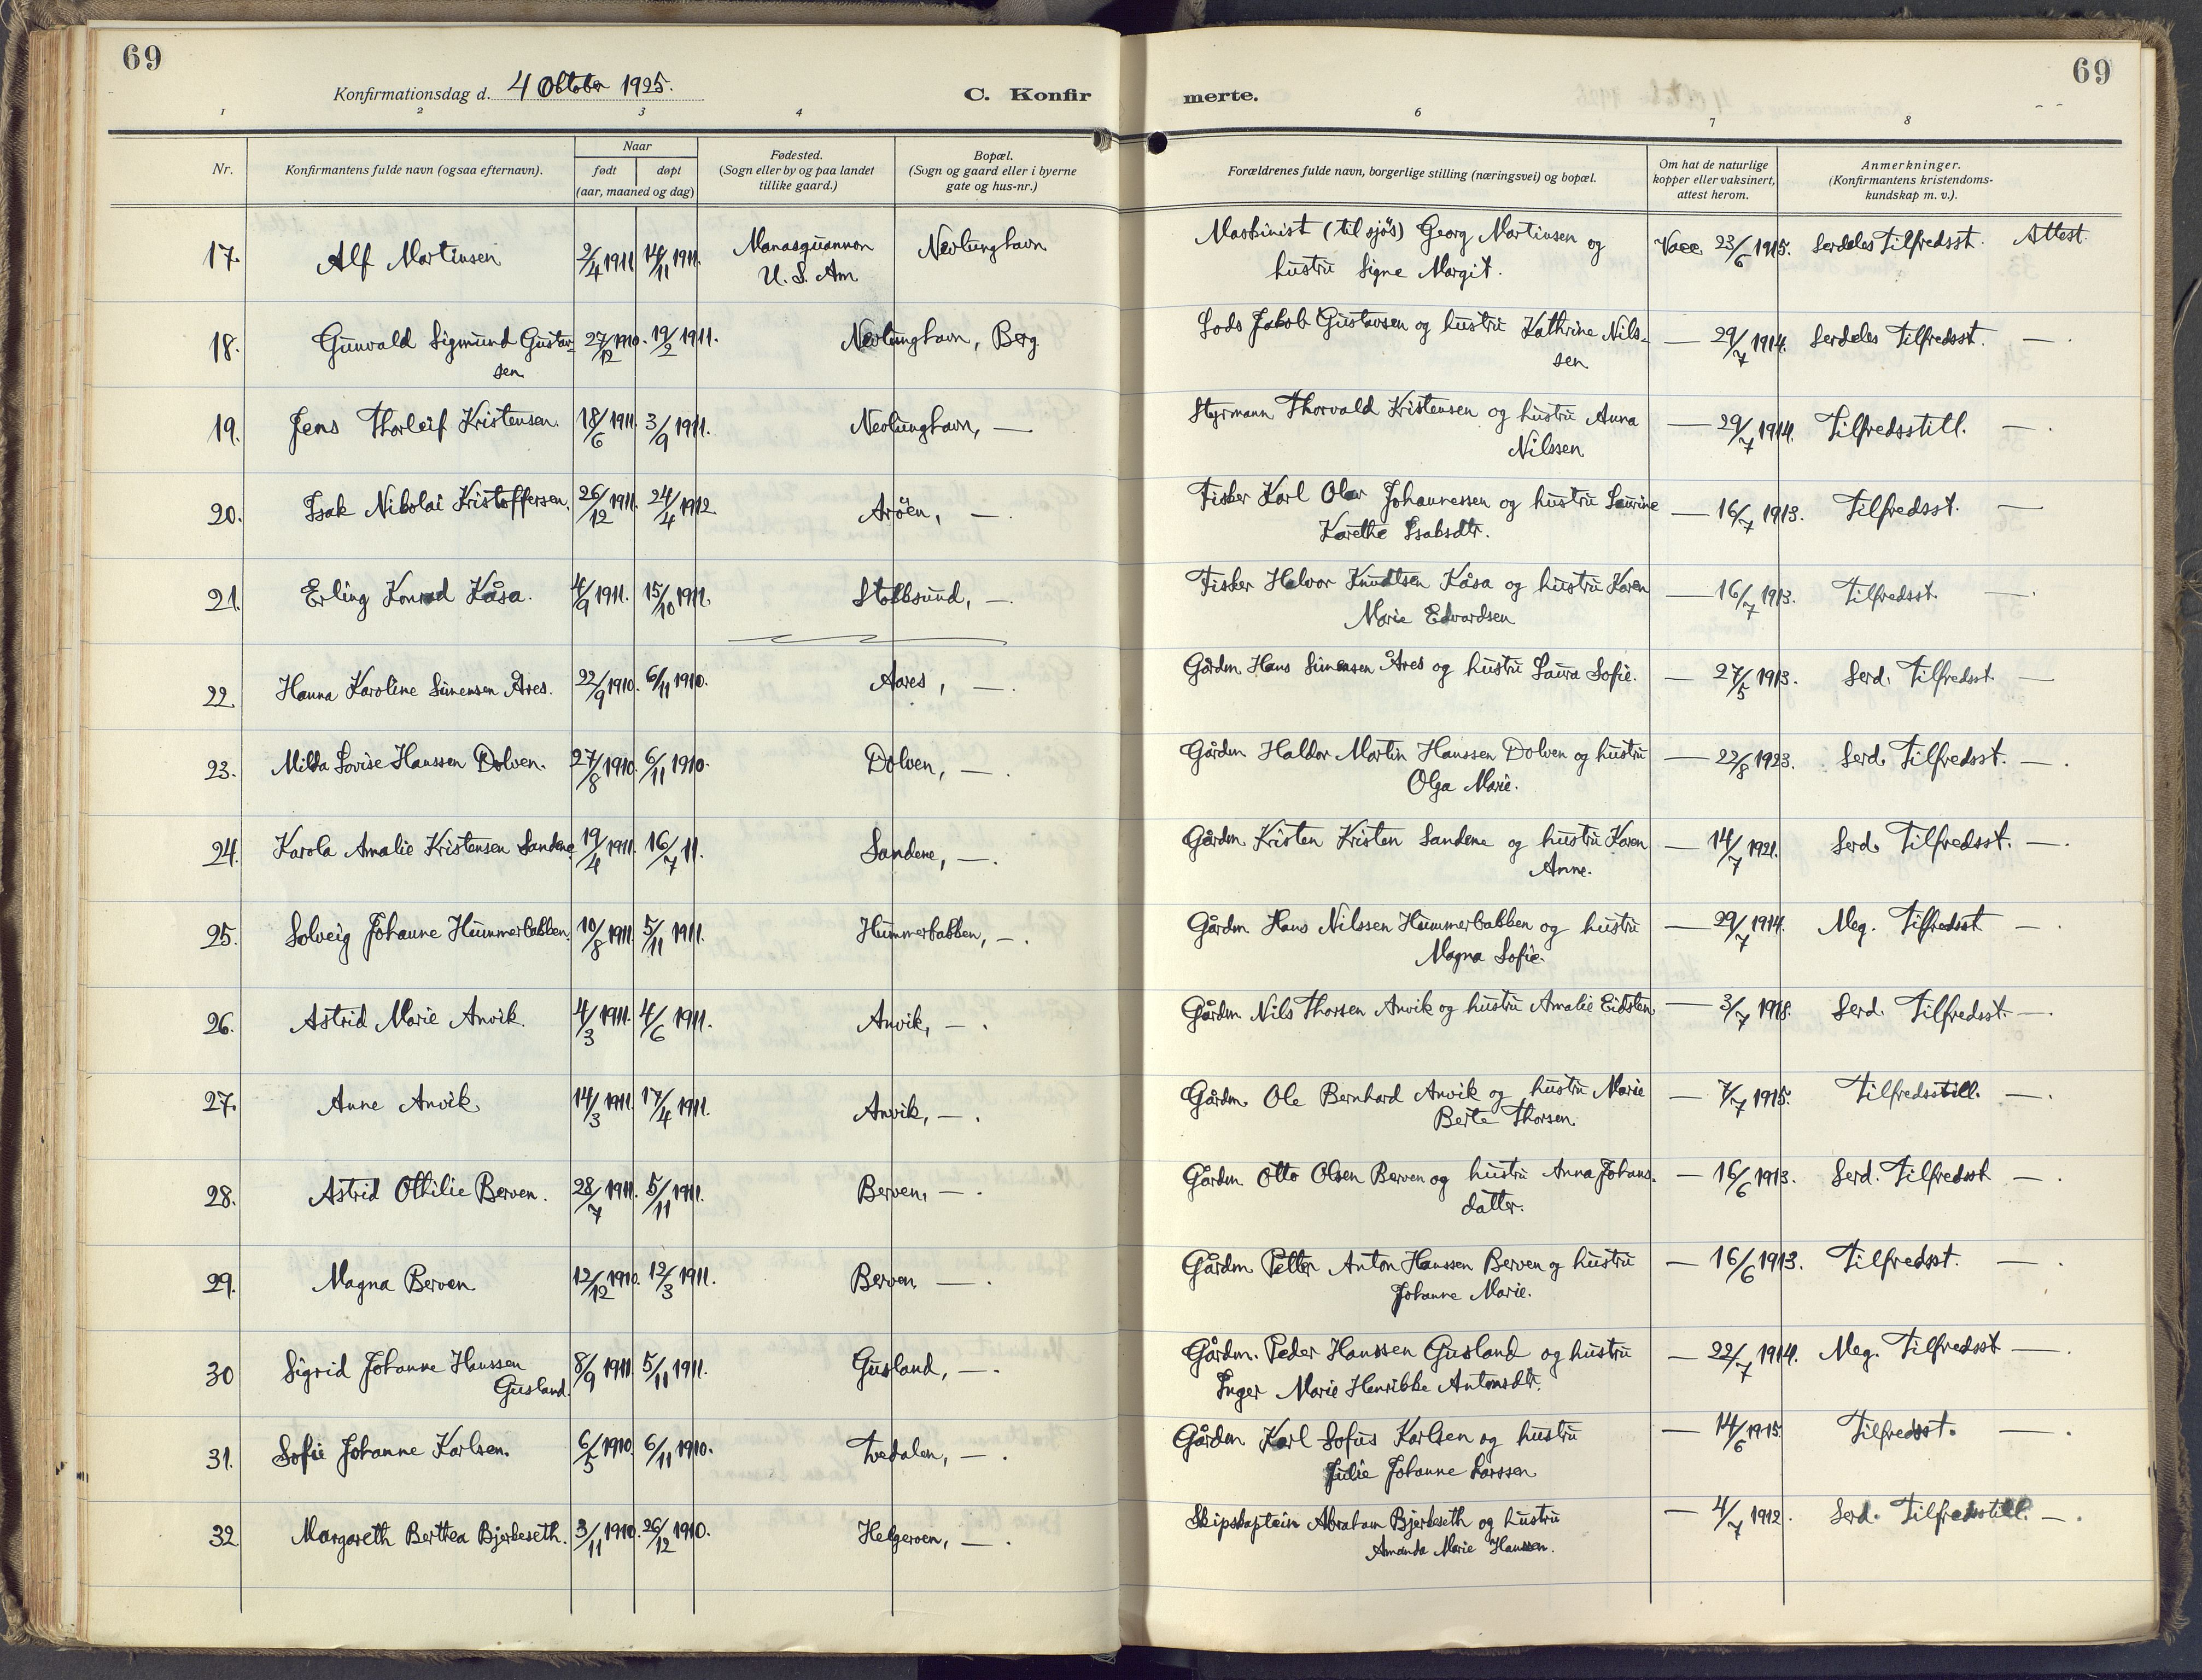 69
69
Konfirmationsdag d. 4 Oktober 1925.
C. Konfir
merte.
1 2 3 4 6 7 8
Nr.
Konfirmantens fulde navn (ogsaa efternavn).
Naar
født
døpt
(aar, maaned og dag)
Fødested.
(Sogn eller by og paa landet
tillike gaard.)
Bopæl.
(Sogn og gaard eller i byerne
gate og hus-nr.)
Forældrenes fulde navn, borgerlige stilling (næringsvei) og bopæl.
Om hat de naturlige
kopper eller vaksinert,
attest herom.
Anmerkninger.
(Konfirmantens kristendoms-
kundskap m. v.).
17. Alf Martinsen 2/4 1911 14/11 1911. Manasquannon Nevlunghavn Maskinist (til sjøs) Georg Martinsen og Vacc. 23/6 1915. Serdeles Tilfredsst. Attest.
U. S. Am hustru Signe Margit.
18. Gunvald Sigmund Gustav- 27/12 1910. 19/2 1911. Nevlunghavn, Berg. Lods Jakob Gustavsen og hustru Kathrine Nils- — 29/7 1914. Serdeles Tilfredsst. — .
sen. sen
19. Jens Thorleif Kristensen. 18/6 1911. 3/9 1911. Nevlunghavn, — Styrmann Thorvald Kristensen og hustru Anna — 29/7 1914. Tilfredsstill. — .
Nilssen
20. Isak Nikolai Kristoffersen. 26/12 1911. 24/4 1912. Arøen, — . Fisker Karl Olav Johannessen og hustru Laurine — 16/7 1913. Tilfredsst. —
Karethe Isaksdtr.
21. Erling Konrad Kåsa. 4/9 1911. 15/10 1911. Stokksund, — . Fisker Halvor Knudtsen Kåsa og hustru Karen — 16/7 1913. Tilfredsst. — .
Marie Edvardsen
22. Hanna Karoline Simensen Åres. 22/9 1910. 6/11 1910. Aares, — . Gårdm. Hans Simensen Åres og hustru Laura Sofie. — 27/5 1913. Serd. Tilfredsst. —
23. Milda Lovise Hanssen Dolven. 27/8 1910. 6/11 1910. Dolven, — . Gårdm Haldor Martin Hanssen Dolven og hustru — 22/8 1923. Serd. Tilfredsst. — .
Olga Marie.
24. Karola Amalie Kristensen Sandene 19/4 1911. 16/7 11. Sandene, — . Gårdm. Kristen Kristen Sandene og hustru Karen — 14/7 1921. Serd. Tilfredsst. — .
Anne.
25. Solveig Johanne Hummerbakken. 10/8 1911. 5/11 1911. Hummerbakken, — . Gårdm Hans Nilssen Hummerbakken og hustru — 29/7 1914. Meg. Tilfredsst — .
Magna Sofie.
26. Astrid Marie Anvik. 4/3 1911. 4/6 1911. Anvik, — . Gårdm. Nils Thorsen Anvik og hustru Amalie Eidsten — 3/7 1918. Serd. Tilfredsst. — .
27. Anne Anvik 14/3 1911. 17/4 1911. Anvik, — . Gårdm. Ole Bernhard Anvik og hustru Marie — 7/7 1915. Tilfredsstill. — .
Berte Thorsen
28. Astrid Othilie Berven. 28/7 1911. 5/11 1911. Berven, — . Gårdm. Otto Olsen Berven og hustru Anna Johans- — 16/6 1913. Serd. Tilfredsst — .
datter.
29. Magna Berven 12/12 1910. 12/3 1911. Berven — . Gårdm Petter Anton Hanssen Berven og hustru — 16/6 1913. Tilfredsst. — .
Johanne Marie.
30 Sigrid Johanne Hanssen 8/9 1911. 5/11 1911. Gusland, — . Gårdm. Peder Hanssen Gusland og hustru — 22/7 1914. Meg. Tilfredsst — .
Gusland. Inger Marie Henrikke Antonsdtr.
31. Sofie Johanne Karlsen. 6/5 1910. 6/11 1910. Tvedalen, — . Gårdm Karl Sofus Karlsen og hustru — 14/6 1915. Tilfredsst. — .
Julie Johanne Larssen
32 Margareth Berthea Bjerkeseth. 3/11 1910. 26/12 1910. Helgeroen, — . Skipskaptein Abraham Bjerkeseth og hustru — 4/7 1912. Serd. Tilfredsstill. — .
Amanda Marie Hanssen.